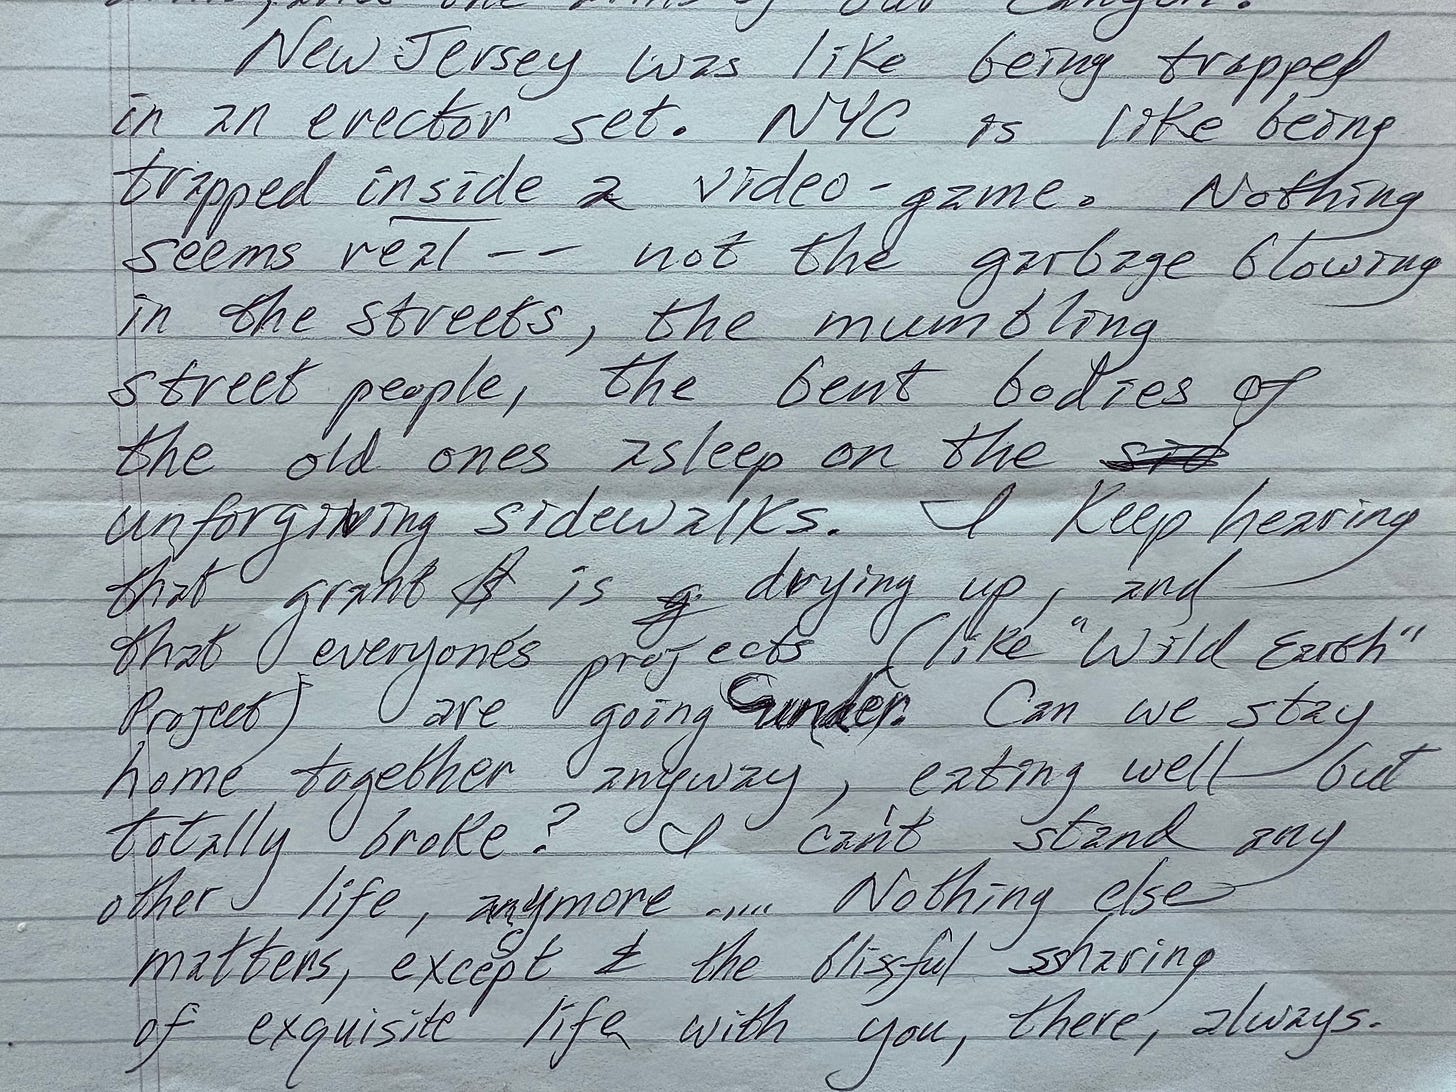 of our Canyon.
New Jersey was like being trapped
in an erector set. NYC is like being
trapped inside a video-game. Nothing
seems real -- not the garbage blowing
in the streets, the mumbling
street people, the bent bodies of
the old ones asleep on the sid
unforgiving sidewalks. I keep hearing
that grant $ is g drying up, and
that everyone's projects (like "Wild Earth"
Project) are going under. Can we stay
home together anyway, eating well but
totally broke? I can't stand any
other life, anymore ..... Nothing else
matters, except the blissful sharing
of exquisite life with you, there, always.